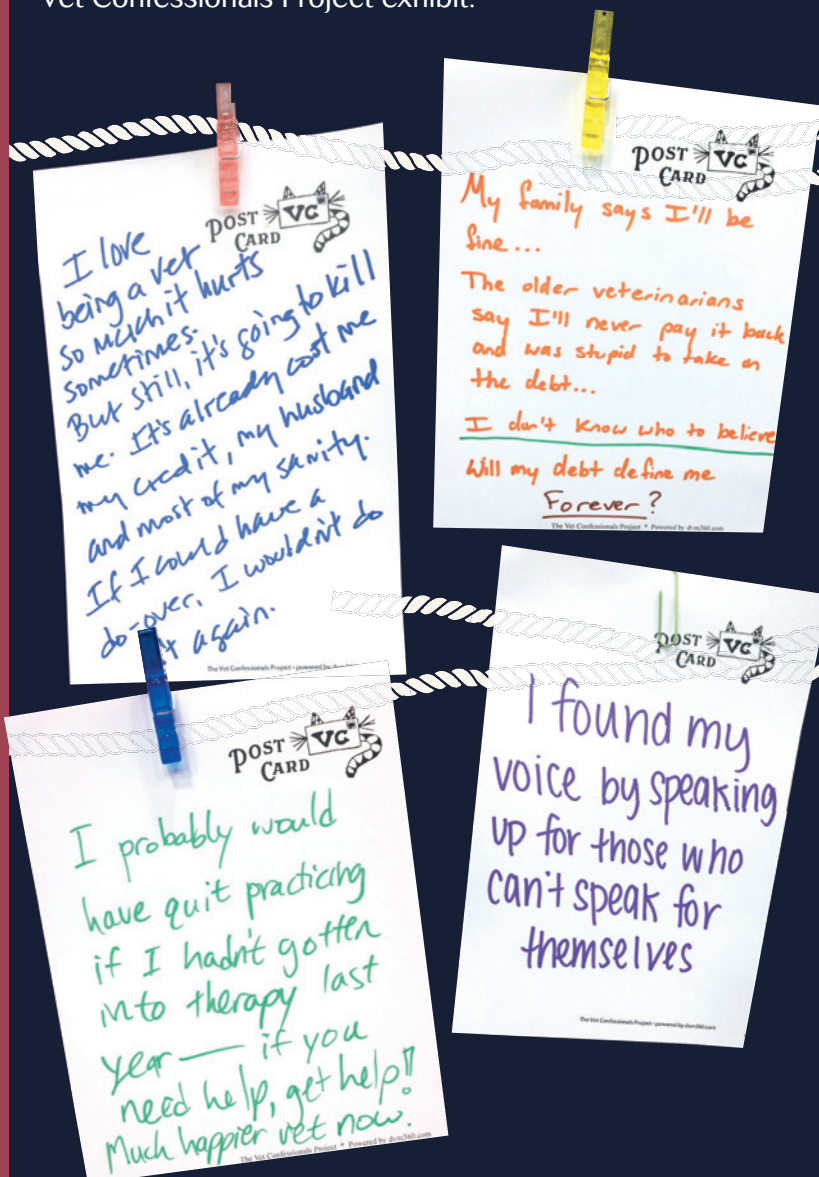 Vet Confessionals Project exhibit.
POST VC
CARD
I love
being a vet
so much it hurts
sometimes.
But still, it's going to kill
me. It's already cost me
my credit, my husband
and most of my sanity.
If I could have a
do-over, I wouldn't do
again.
The Vet Confessionals Project • powered by
POST VC
CARD
My family says I'll be
fine...
The older veterinarians
say I'll never pay it back
and was stupid to take on
the debt...
I don't know who to believe
Will my debt define me
Forever?
The Vet Confessionals Project * Powered by dvm360.com
POST VC
CARD
I probably would
have quit practicing
if I hadn't gotten
into therapy last
year — if you
need help, get help!!
Much happier vet now.
The Vet Confessionals Project * Powered by dvm360.com
POST VC
CARD
I found my
voice by speaking
up for those who
can't speak for
themselves
The Vet Confessionals Project • powered by dvm360.com